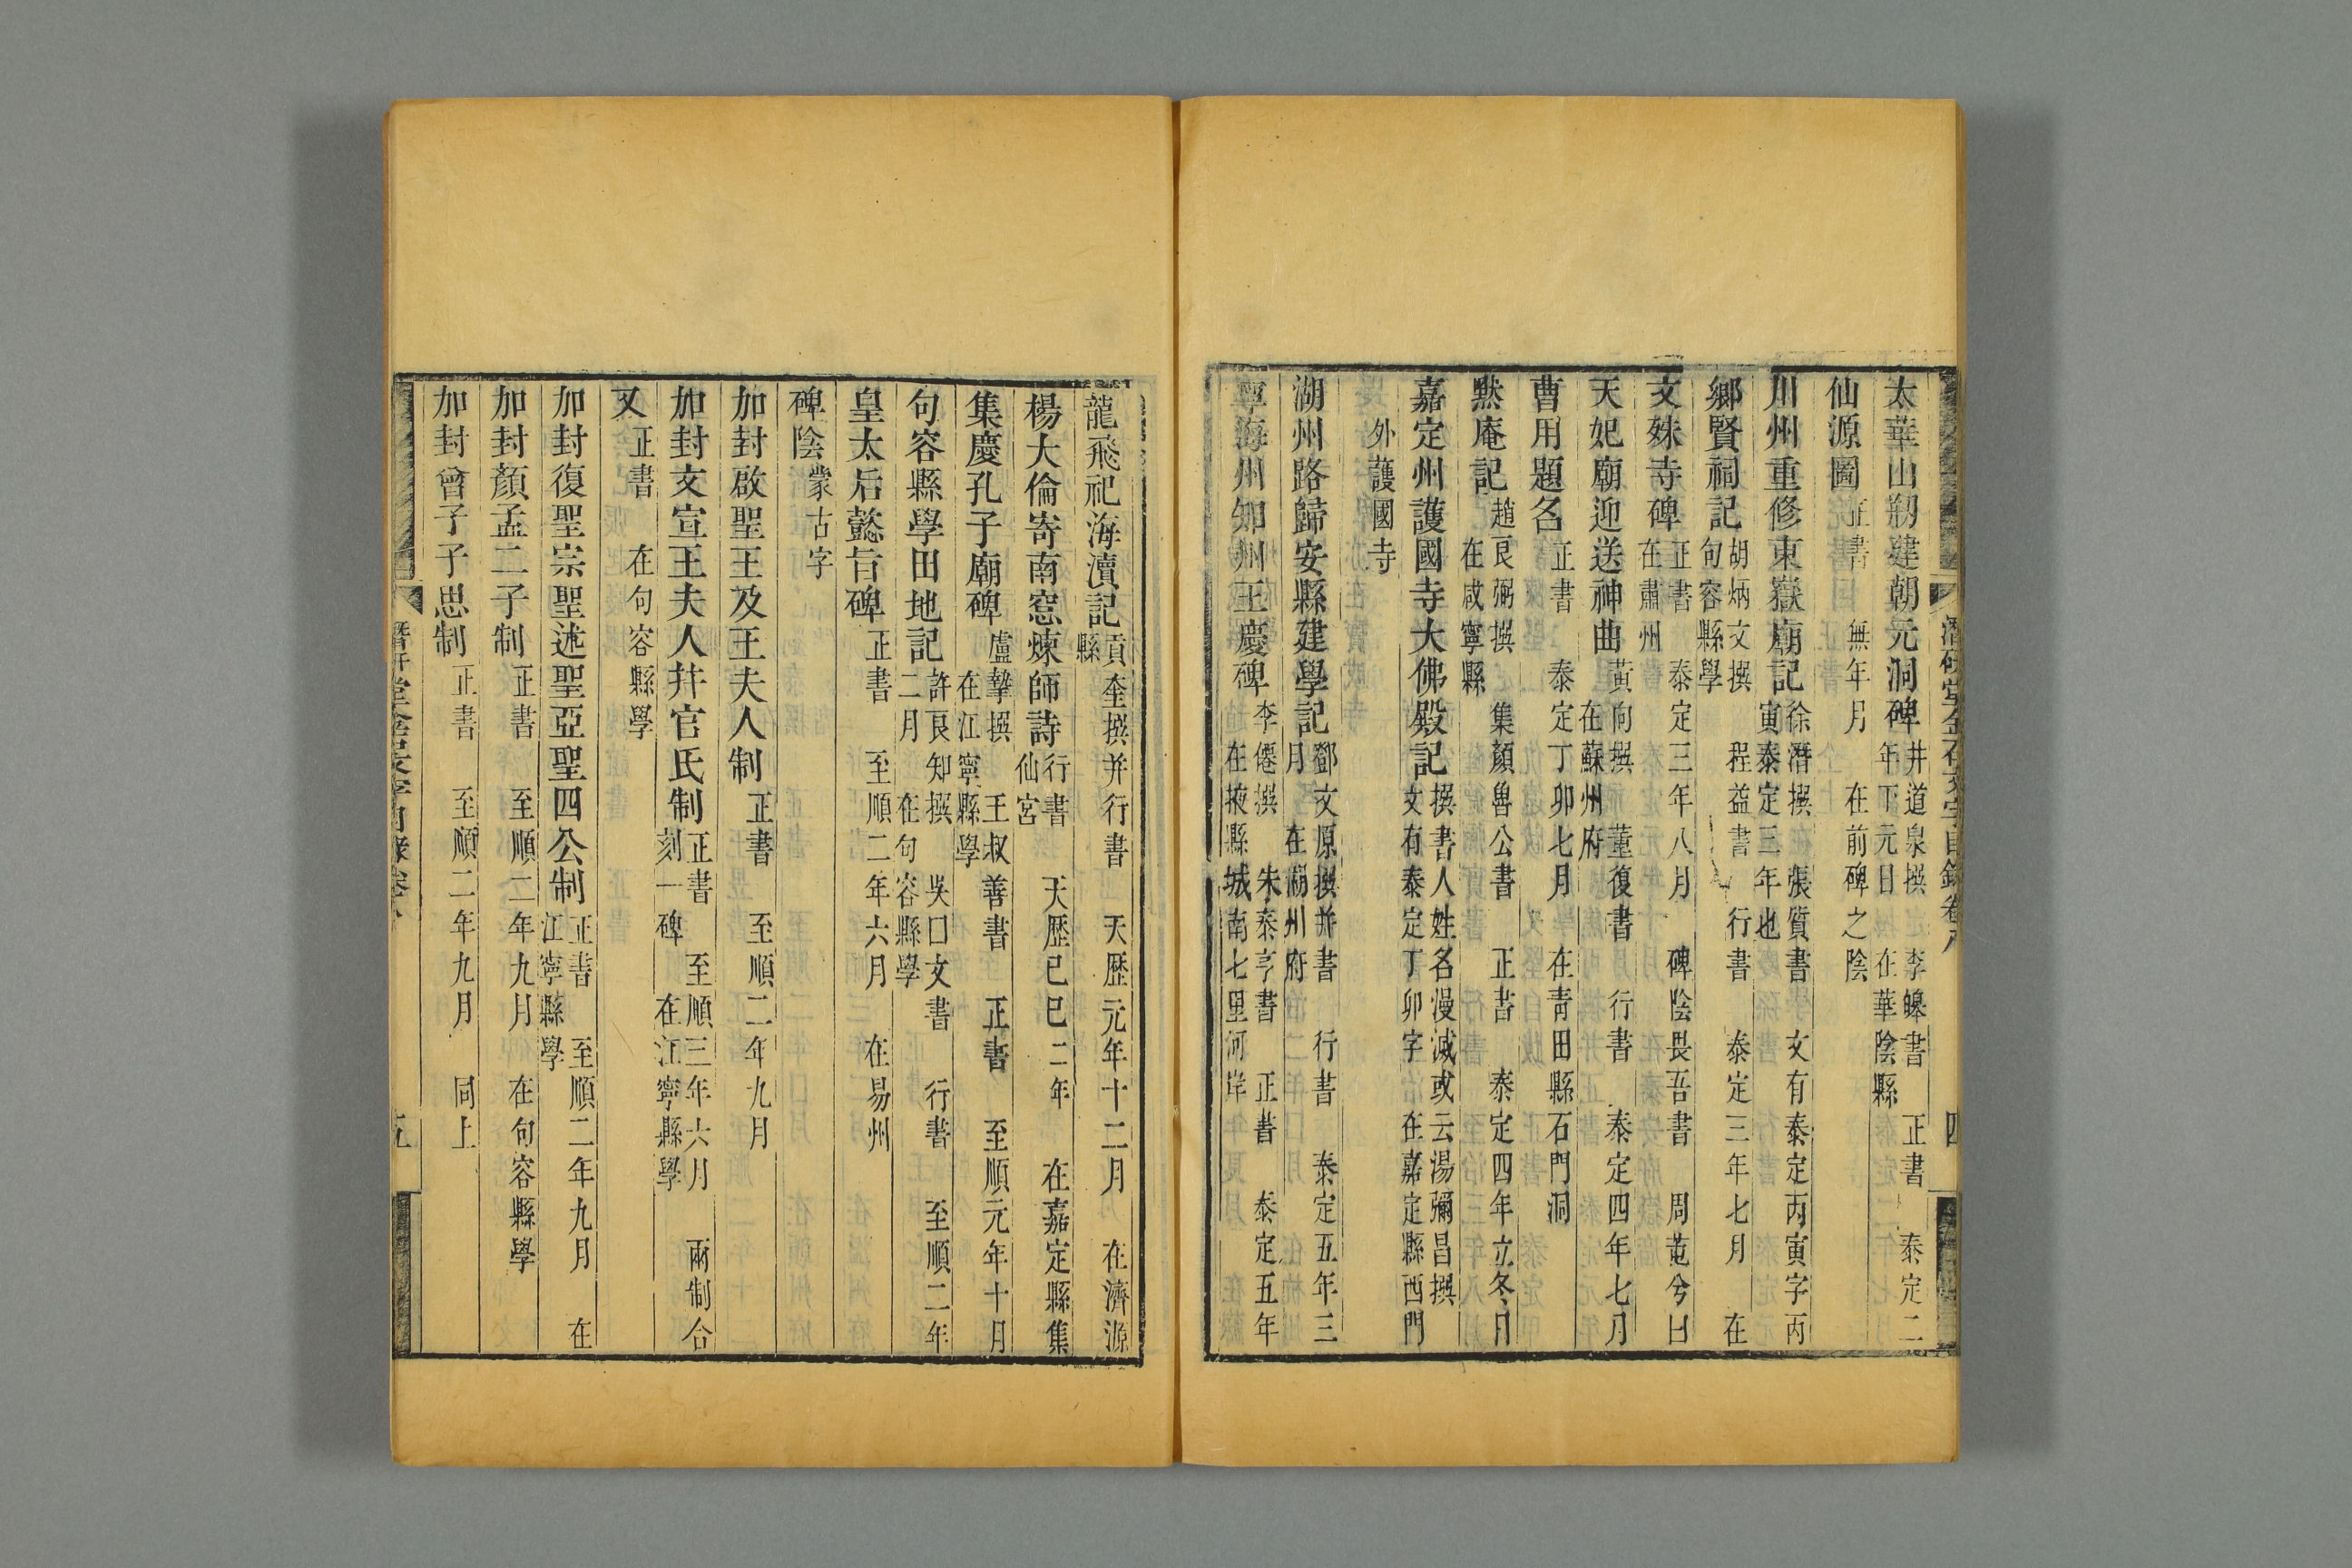 太華山剏建朝元洞碑 井道泉撰 李皞書 正書 泰定二年下元日 在華陰縣
仙源圖 正書 無年月 在前碑之陰
川州重修東嶽廟記 徐潛撰 張質書 文有泰定丙寅字丙寅泰定三年也
鄉賢祠記 胡炳文撰 程益書 行書 泰定三年七月 在句容縣學
文殊寺碑 正書 泰定三年八月 碑陰畏吾書 周苝兮曰 在肅州
天妃廟迎送神曲 黃向撰 董復書 行書 泰定四年七月 在蘇州府
曹用題名 正書 泰定丁卯七月 在青田縣石門洞
默庵記 趙良弼撰 集顏魯公書 正書 泰定四年立冬日 在咸寧縣
嘉定州護國寺大佛殿記 撰書人姓名漫滅或云湯彌昌撰文有泰定丁卯字 在嘉定縣西門
外護國寺
湖州路歸安縣建學記 鄧文原撰并書 行書 泰定五年三月 在湖州府
寧海州知州王慶碑 李僊撰 朱泰亨書 正書 泰定五年 在掖縣城南七里河岸
潛研堂金石文字目錄卷八 四
龍飛祀海瀆記 貢奎撰并行書 天歷元年十二月 在濟源縣
楊大倫寄南窓煉師詩 行書 天歷己巳二年 在嘉定縣集仙宮
集慶孔子廟碑 盧摯撰 王叔善書 正書 至順元年十月 在江寧縣學
句容縣學田地記 許良知撰 吳囗文書 行書 至順二年二月 在句容縣學
皇太后懿旨碑 正書 至順二年六月 在易州
碑陰 蒙古字
加封啟聖王及王夫人制 正書 至順二年九月
加封文宣王夫人幷官氏制 正書 至順三年六月 兩制合刻一碑 在江寧縣學
又 正書 在句容縣學
加封復聖宗聖述聖亞聖四公制 正書 至順二年九月 在江寧縣學
加封顏孟二子制 正書 至順二年九月 在句容縣學
加封曾子子思制 正書 至順二年九月 同上